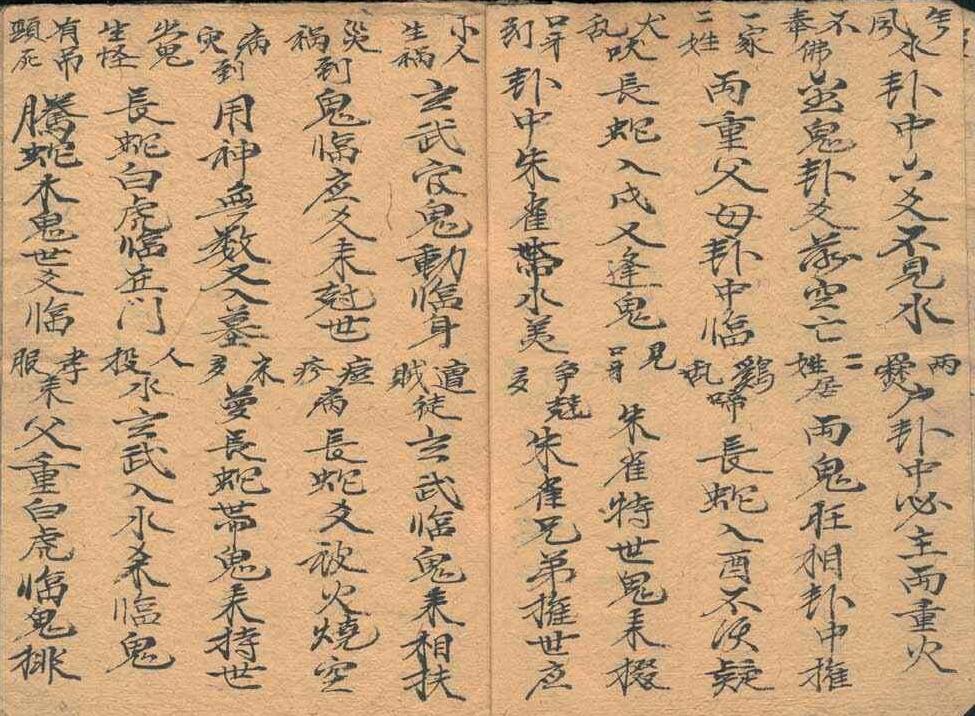 风水 卦中六爻不見水 兩灶户 卦中必主兩重火
不奉佛 並鬼卦爻落空亡 二姓居 兩鬼旺相卦中擁
一家二姓 兩重父母卦中臨 鷄乱啼 長蛇入酉不須疑
犬乱吠 長蛇入戍又逢鬼 見口舌 朱雀特世鬼耒掇
口牙到 卦中朱雀帶水美 多争競 朱雀兄弟擁世应
小人生祸 玄武官鬼動臨身 遭賊徒 玄武臨鬼耒相扶
災祸到 鬼臨应爻耒尅世 痘疹病 長蛇爻被火燒空
病灾到 用神無数又入墓 多床夢 長蛇帶鬼耒持世
坐鬼生怪 長蛇白虎臨在门 人投水 玄武入水来臨鬼
有吊頸死 騰蛇木鬼世爻臨 孝服耒 父重白虎臨鬼排